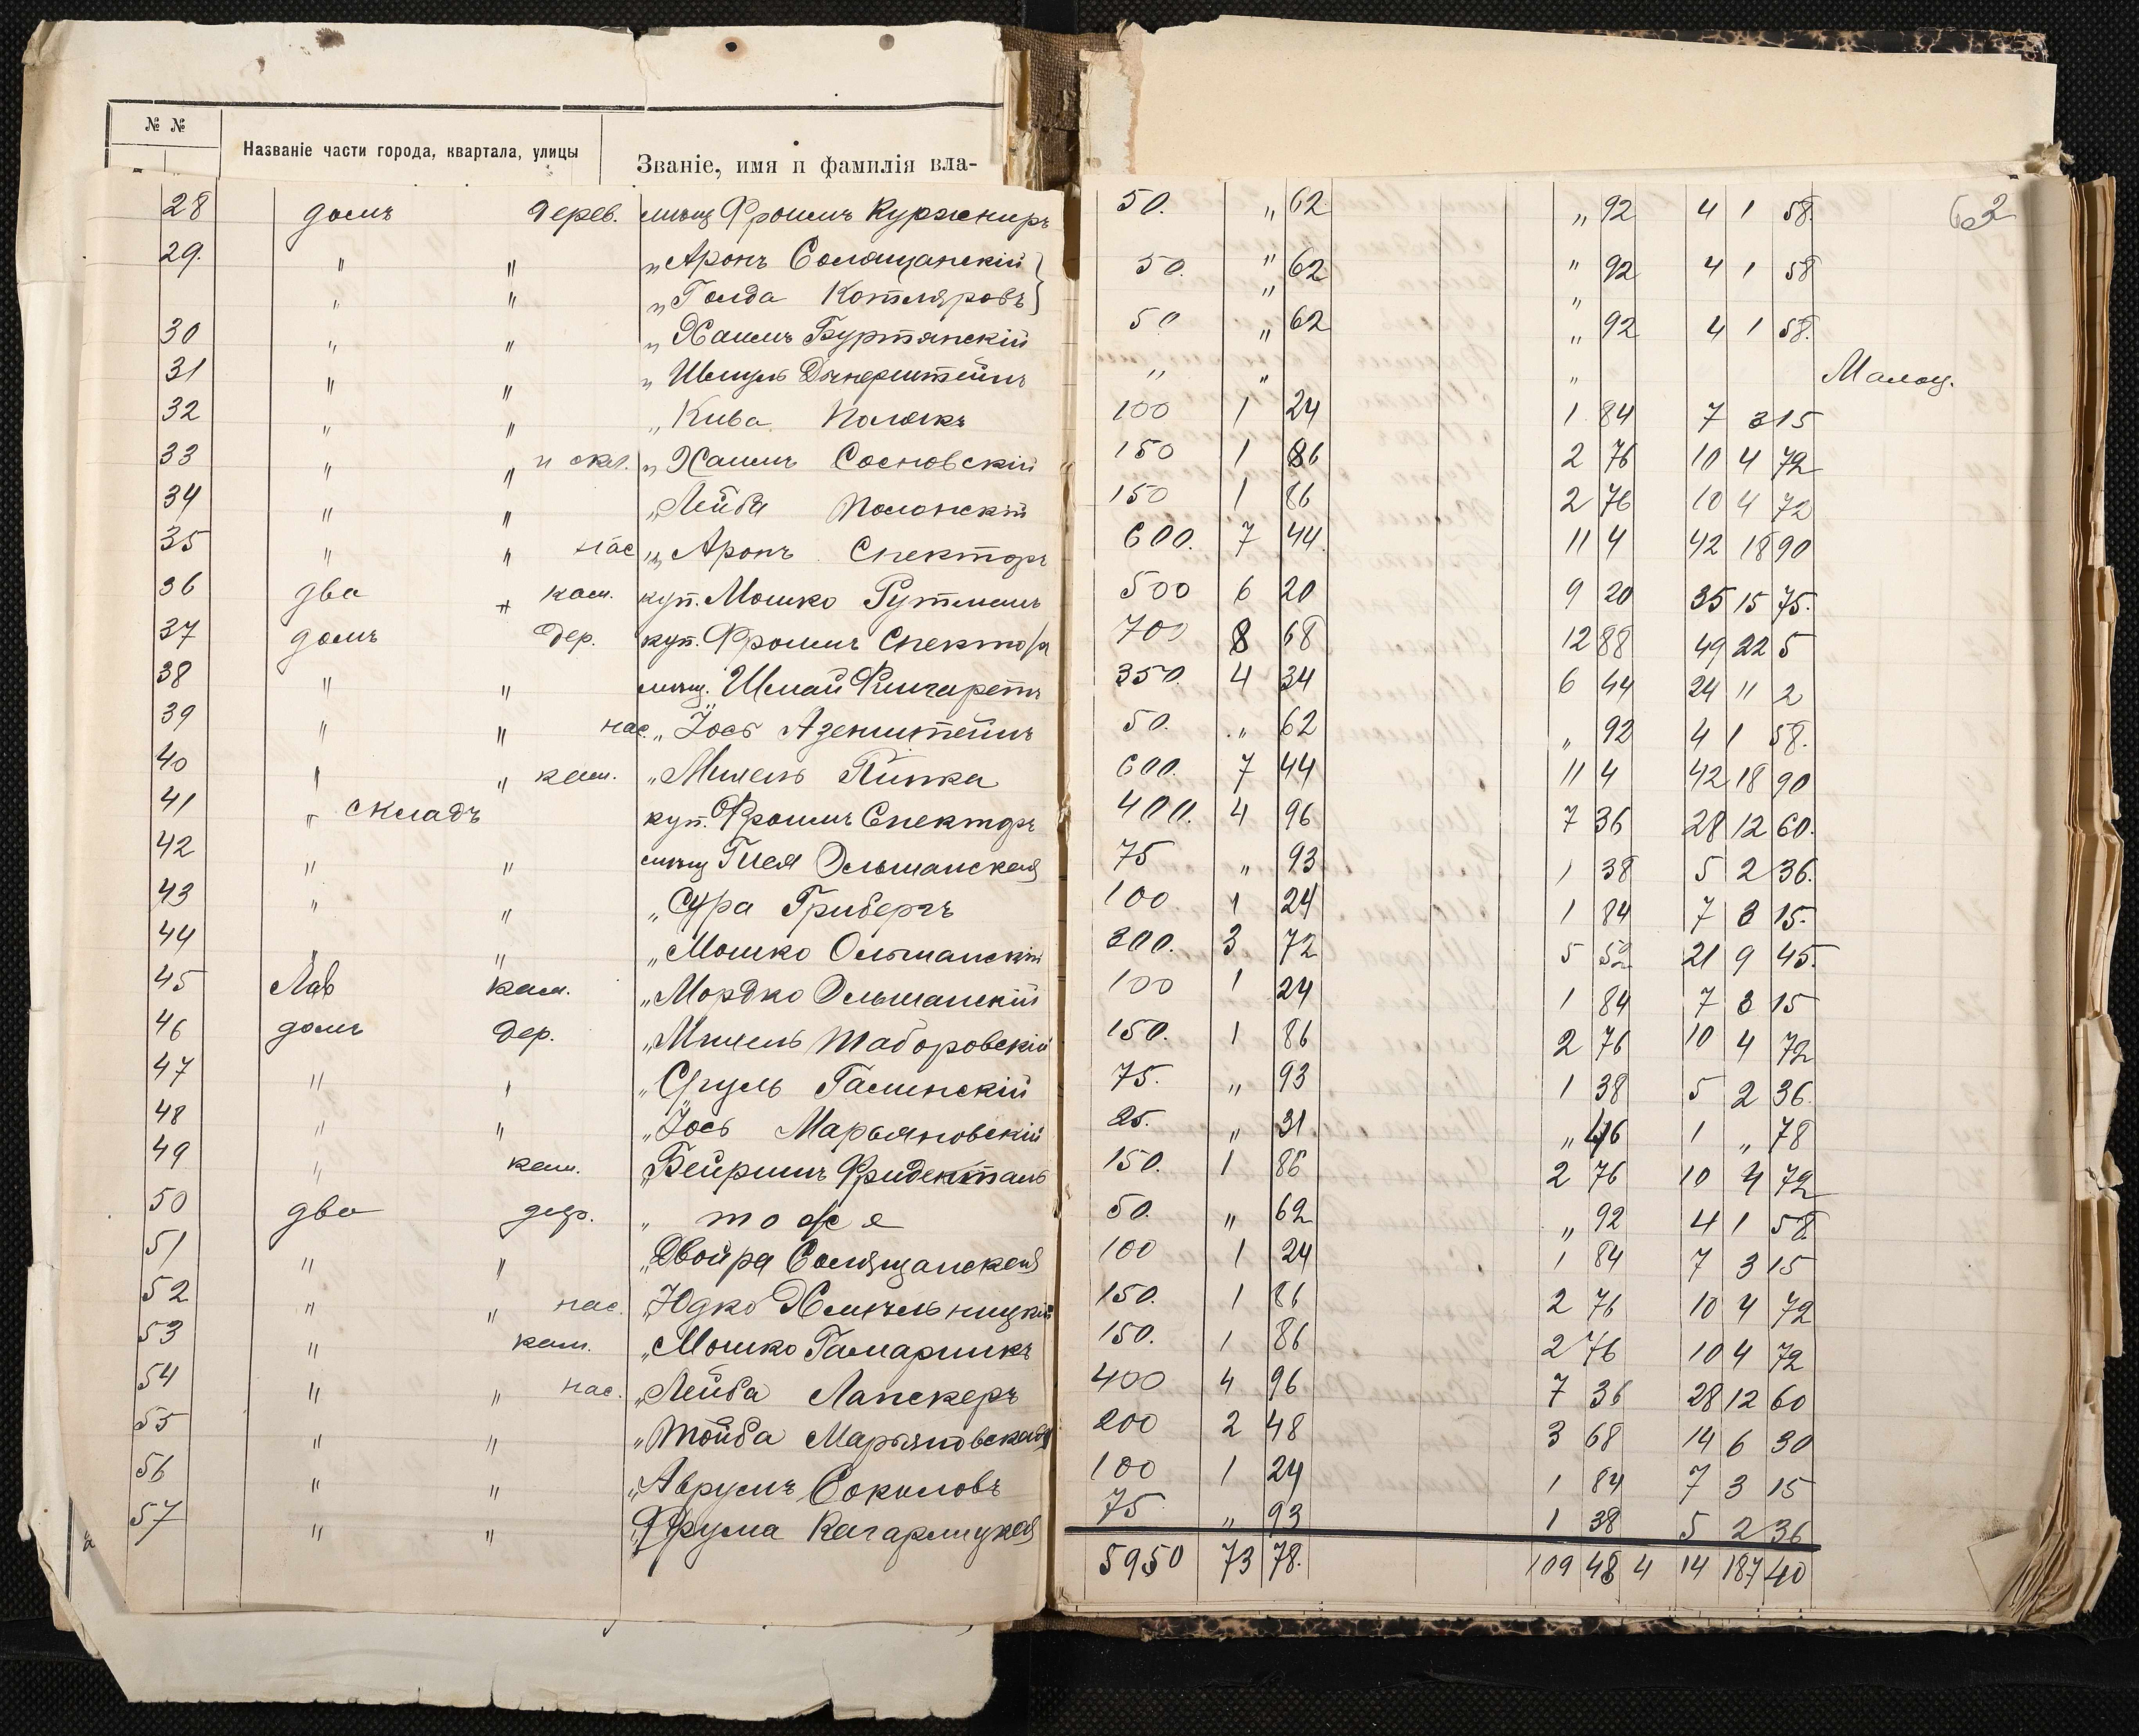 № №
Названіе части города, квартала, улицы
Званіе, имя и фамилія вла-
62
28 домъ дерев. мѣщ Фроимъ Куржниръ 50. " 62 " 92 4 1 58
29. " " " Аронъ Солящанскій } 50. " 62 " 92 4 1 58
" " " Голда Котляровъ } " "
30 " " " Хаимъ Буртянскій 50 " 62 " 92 4 1 58.
31 " " " Шмуль " " " Малоц.
32 " " " Кива Полякъ 100 1 24 1 84 7 3 15
33 " " и скл. " Хаимъ Сосновскій 150 1 86 2 76 10 4 72
34 " " " Лейба Полонскій 150 1 86 2 76 10 4 72
35 " " нас " Аронъ Спекторъ 600. 7 44 11 4 42 18 90
36 два " кам. куп. Мошко Гутманъ 500 6 20 9 20 35 15 75.
37 домъ дер. куп. Фроимъ Спекторъ 700 8 68 12 88 49 22 5
38 " " мѣщ. Шмай 350. 4 34 6 44 24 11 2
39 " " нас. " Іось Азенштейнъ 50. " 62 " 92 4 1 58.
40 " " кам. " Михель Пинка 600. 7 44 11 4 42 18 90
41 " складъ куп. Фроимъ Спекторъ 400. 4 96 7 36 28 12 60.
42 " " мѣщ Гися Ольшанская 75 " 93 1 38 5 2 36.
43 " " " Сура Грибергъ 100 1 24 1 84 7 3 15.
44 " " " Мошко Ольшанскій 300. 3 72 5 52 21 9 45.
45 Лав кам. " Мордко Ольшанскій 100 1 24 1 84 7 3 15
46 домъ дер. " Михель Таборовскій 150. 1 86 2 76 10 4 72
47 " " " Сруль Галинскій 75. " 93 1 38 5 2 36.
48 " " " Іось Марьяновскій 25. " 31 " 46 1 " 78
49 " кам. " Бейришъ Фриденталь 150. 1 86 2 76 10 4 72
50 два дер. " тоже 50. " 62 " 92 4 1 58
51 " " " Двойра Солящанская 100 1 24 1 84 7 3 15
52 " " нас. " Юдко Хмѣльницкій 150. 1 86 2 76 10 4 72
53 " кам. " Мошко Гамарникъ 150. 1 86 2 76 10 4 72
54 " " нас. " Лейба Лапскеръ 400 4 96 7 36 28 12 60
55 " " " Тойба Марьяновская 200 2 48 3 68 14 6 30
56 " " " Аврумъ Соколовъ 100 1 24 1 84 7 3 15
57 " " " Фрума Кагарлицкая 75 " 93 1 38 5 2 36
5950 73 78. 109 48 4 14 187 40